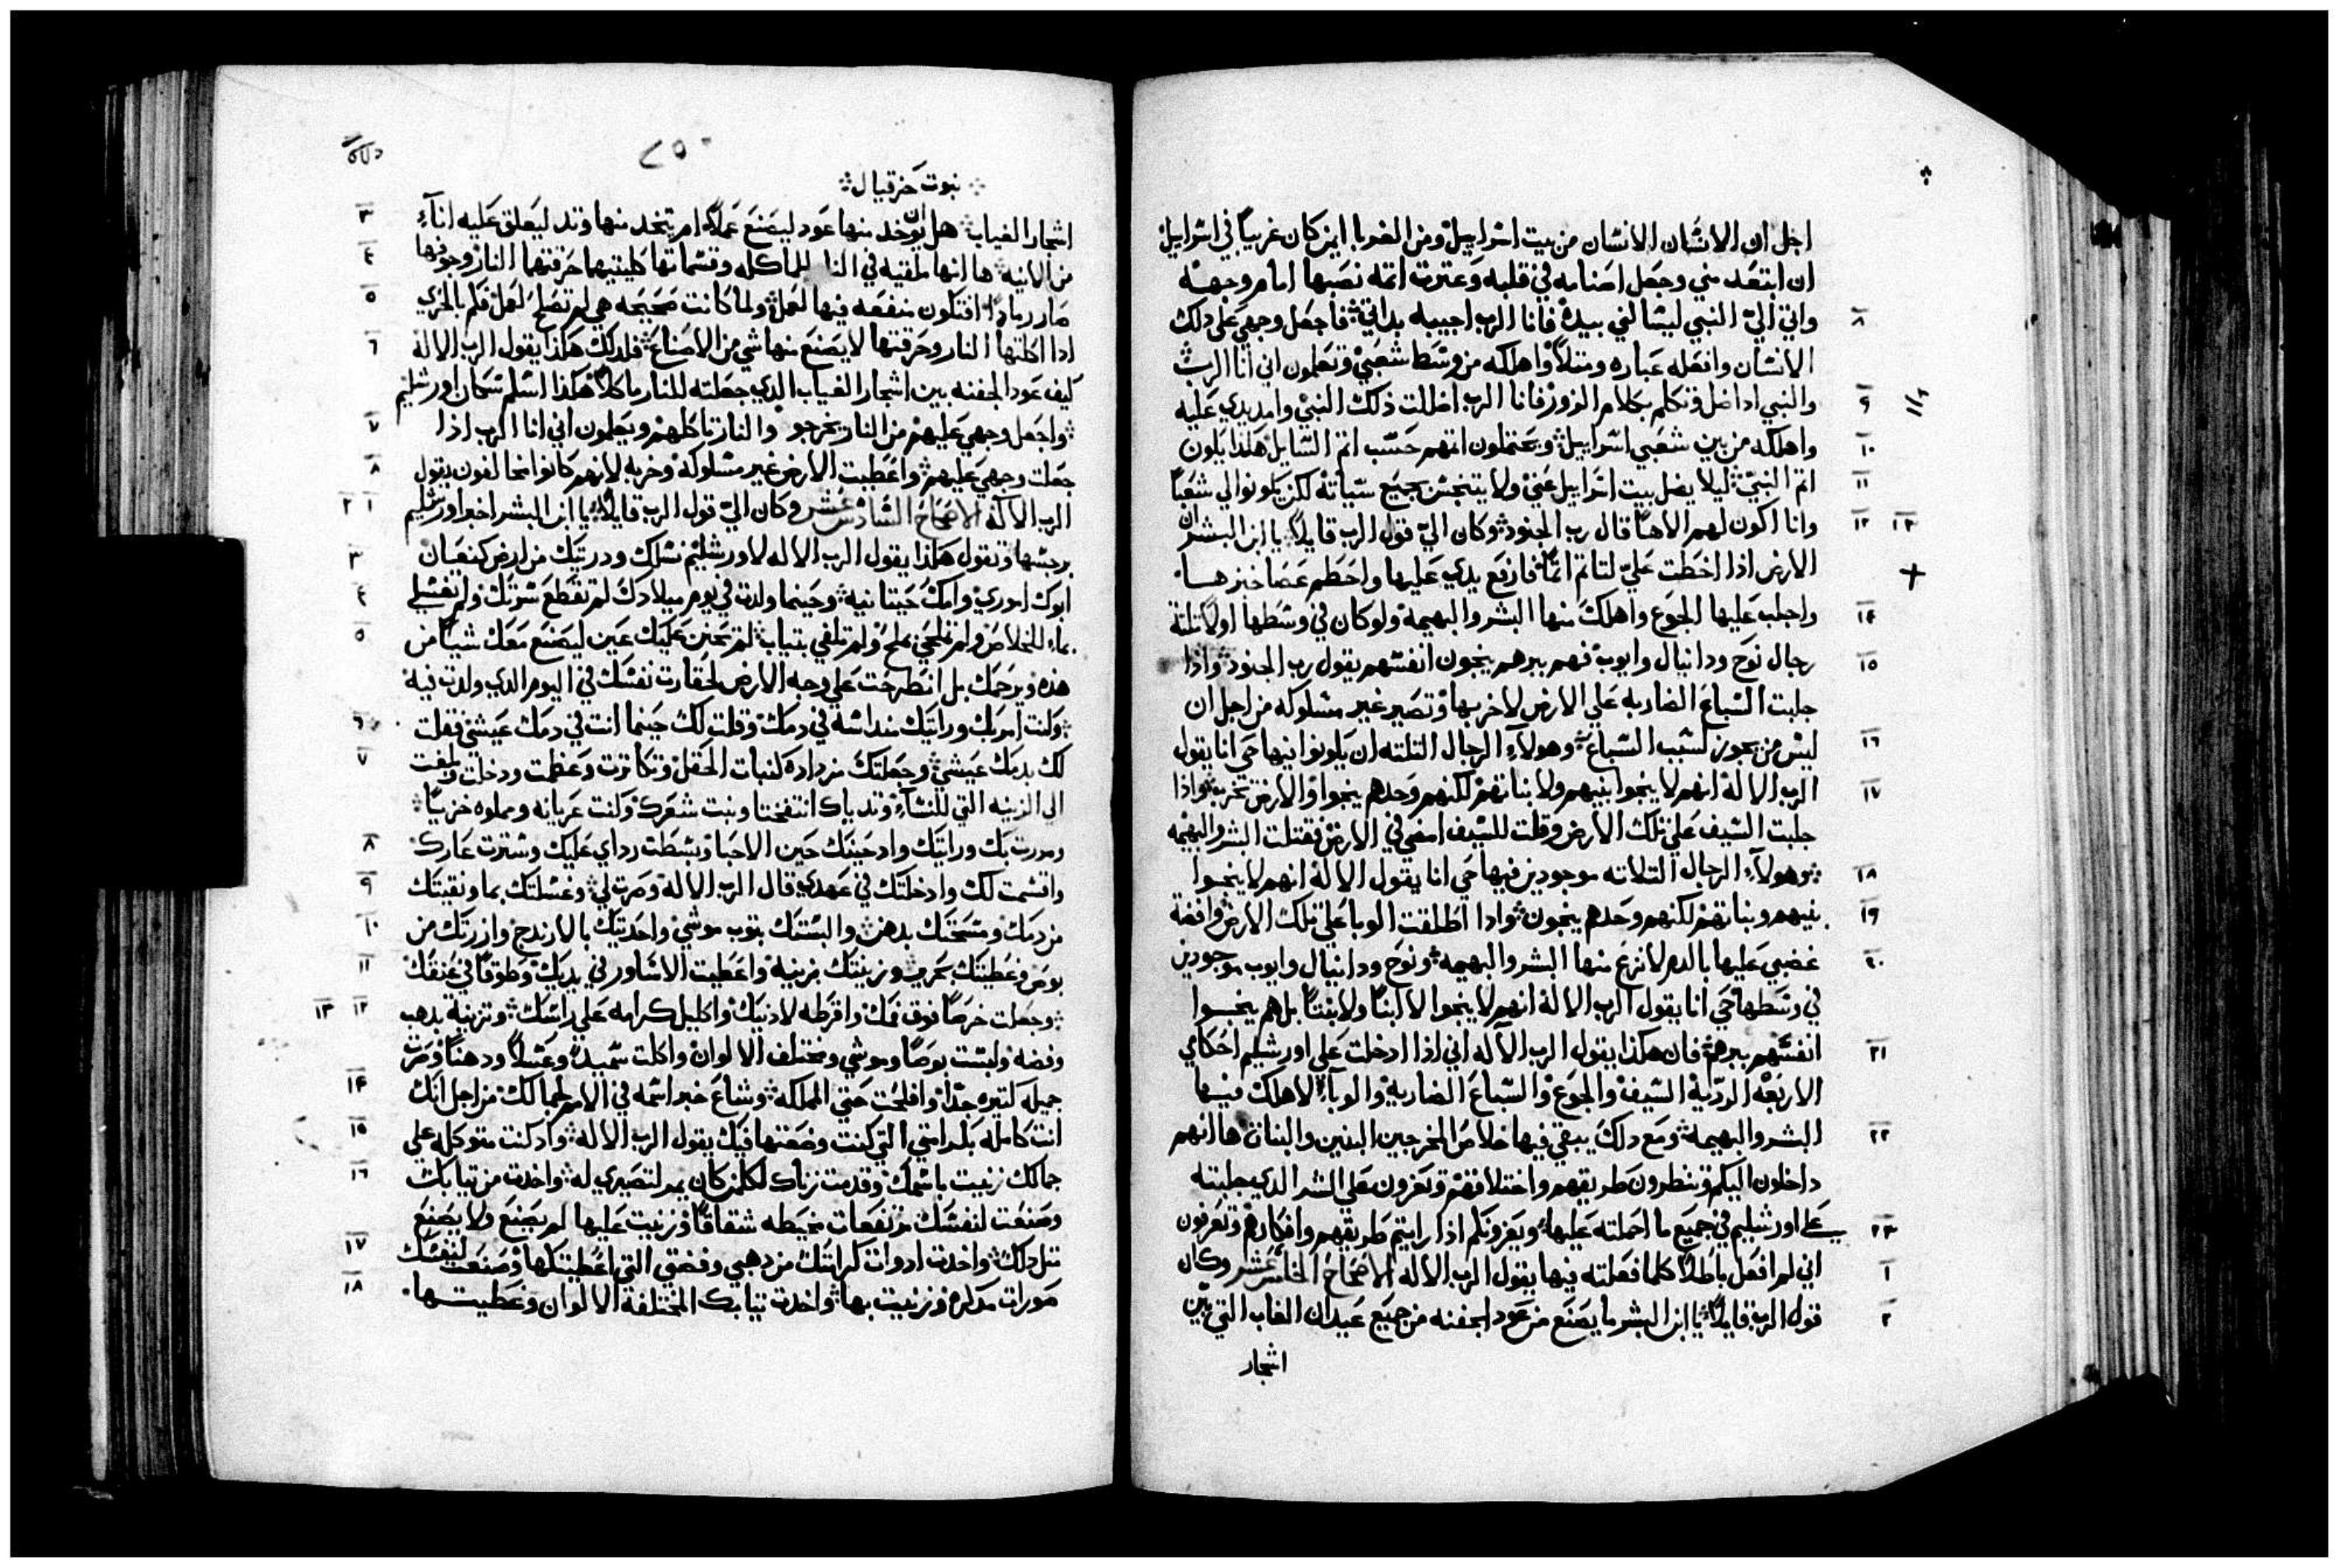 اجل ان الانسان الانسان من بيت اسراييل ومن الغربا اين كان غريبا في اسراييل
ان ابتعد مني وجعل اصنامه في قلبه وعترت اتمه نصبها امام وجهه
٨ واتي الي النبي ليسالني بيده فانا الرب اجيبه بداتي فاجعل وجهي علي دلك
الانسان وافعله عباره ومتلا واهلكه من وسط شعبي وتعلمون اني انا الرب
٩ والنبي ادا ضل وتكلم بكلام الزور فانا الرب اضللت ذلك النبي وامد يدي عليه
١٠ واهلكه من بين شعبي اسراييل ويحتملون اتمهم حسب اتم السايل هكذا يكون
١١ اتم النبي ليلا يضل بيت اسراييل عني ولا يتنجس بجميع سياته لكن يكونوا لي شعبا
١٢ ١٣ وانا اكون لهم الاها قال رب الجنود وكان الي قول الرب قايلا يا ابن البشر ان
الارض اذا اخطت علي لتاتم اتما فارفع يدي عليها واحطم عصا خبزها
١٤ واجلب عليها الجوع واهلك منها البشر والبهيمه ولو كان في وسطها اولاي تلتة
١٥ رجال نوح ودانيال وايوب فهم ببرهم ينجون انفسهم يقول رب الجنود واذا
جلبت السباع الضاريه علي الارض لاخربها وتصير غير مسلوكه من اجل ان
١٦ ليس من يجوز لسبب السباع وهولاء الرجال التلته ان يكونوا فيها حي انا يقول
١٧ الرب الاله انهم لا ينجوا بنيهم ولا بناتهم لكنهم وحدهم ينجوا والارض تخرب واذا
جلبت السيف علي تلك الارض وقلت للسيف امضي في الارض فقتلت البشر والبهيمه
١٨ وهولاء الرجال التلاته موجودين فيها حي انا يقول الاله انهم لا ينجوا
١٩ بنيهم وبناتهم لكنهم وحدهم ينجون وادا اطلقت الوبا علي تلك الارض وافضة
٢٠ غضبي عليها بالدم لانزع منها البشر والبهيمه ونوح ودانيال وايوب موجودين
في وسطها حي انا يقول الرب الاله انهم لا ينجوا لا ابنا ولا بنتا بل هم ينجوا
٢١ انفسهم ببرهم فان هكذا يقول الرب الاله اني اذا ادخلت علي اورشليم احكامي
الاربعه الرديه السيف والجوع والسباع الضاريه والوباء لاهلك فيها
٢٢ البشر والبهيمه ومع دلك يبقي فيها خلاص المخرجين البنين والبنات ها انهم
داخلون اليكم وتنظرون طريقهم واختلافهم وتعزون علي الشر الدي جلبته
٢٣ علي اورشليم في جميع ما احملته عليها ويعزونكم اذا رايتم طريقهم وافكارهم وتعرفون
١ اني لم افعل باطلا كلما فعلته فيها يقول الرب الاله الاصحاح الخامس عشر وكان
٢ قول الرب قايلا يا ابن البشر ما يصنع من عود الجفنه من جميع عيدان الغاب التي بين
اشجار
٢٥٠
نبوت حزقيال
٣ اشجار الغياب هل يوخد منها عود ليصنع عملا ام يتخد منها وتد ليعلق عليه اناء
٤ من الانيه ها انها ملقيه في النار للماكله وقسماتها كليتيهما حرقتهما النار وجوفها
٥ صار رمادا افتكون منفعه فيها لعمل ولما كانت صحيحه هي لم تصلح لعمل فكم بالحري
٦ ادا اكلتها النار وحرقتها لا يصنع منها شي من الاصناع فلدلك هكذا يقول الرب الاله
كيف عود الجفنه بين اشجار الغياب الدي جعلته للنار ماكلا هكذا اسلم سكان اورشليم
٧ واجعل وجهي عليهم من النار يخرجو والنار تاكلهم ويعلمون اني انا الرب اذا
٨ جعلت وجهي عليهم واعطيت الارض غير مسلوكه وخربه لانهم كانوا مخالفون يقول
١ ٢ الرب الاله الاصحاح السادس عشر وكان الي قول الرب قايلا يا ابن البشر اخبر اورشليم
٣ برجسها وتقول هكذا يقول الرب الاله لاورشليم نسلك ودريتك من ارض كنعان
٤ ابوك اموري وامك حيتانيه وحينما ولدت في يوم ميلادك لم تقطع سرتك ولم تغسلي
٥ بماء للخلاص ولم تملحي بملح ولم تلفي بتياب لم تحنن عليك عين ليصنع معك شيا من
هذه ويرحمك بل انطرحت علي وجه الارض لحقارت نفسك في اليوم الدي ولدت فيه
٦ وكنت امر بك ورايتك منداسه في دمك وقلت لك حينما انت في دمك عيشي فقلت
٧ لك بدمك عيشي وجعلتك مزداده كنبات الحقل وتكاترت وعظمت ودخلت وبلغت
الي الزينه التي للنساء وتدياك انتفختا ونبت شعرك وكنت عريانه ومملوه خزيا
٨ ومررت بك ورايتك واد حينك حين الاحبا وبسطت رداي عليك وسترت عارك
٩ واقسمت لك وادخلتك في عهدي قال الرب الاله وصرت لي وغسلتك بما ونقيتك
١٠ من دمك ومسحتك بدهن والبستك بتوب موشي واحديتك بالارندج وازرتك من
١١ بوص وغطيتك بحرير وزينتك بزينه واعطيت الاساور في يديك وطوقا في عنقك
١٢ ١٣ وجعلت خرصا فوق فمك واقرطه لادنيك واكليل كرامه علي راسك وتزنية بدهب
وفضه ولبست بوصا وموشي ومختلف الالوان واكلت سميدا وعسلا ودهنا وصرت
١٤ جميله كتيره جدا وافلحت حتي المملكه وشاع خبر اسمه في الامم لجمالك من اجل انك
١٥ انت كامله بكرامتي التي كنت وضعتها فيك يقول الرب الاله واد كنت متوكله علي
١٦ جمالك زنيت باسمك وقدمت زناك لكل من كان يمر لتصيري له واخدت من تيابك
وصنعت لنفسك مرتفعات مخيطه شقاقا وزنيت عليها لم يصنع ولا يصنع
١٧ متل دلك واخدت ادوات كرامتك من دهبي وفضتي التي اعطيتكها وصنعت لنفسك
١٨ صورات مدكره وزنيت بها واخدت تيابك المختلفة الالوان وغطيتها